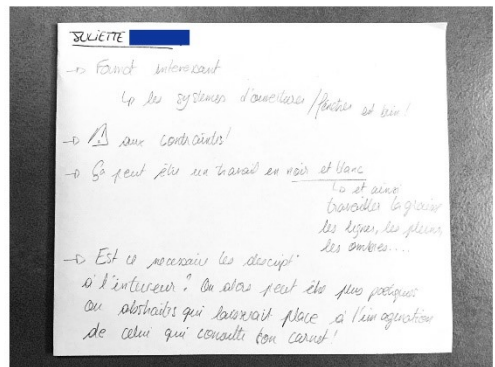 JULIETTE
→ Format intéressant
↳ les systèmes d'ouvertures/fenêtres est bien!
→ ⚠ aux contraintes!
→ Ça peut être un travail en noir et blanc
↳ et ainsi
travailler la graisse
les lignes, les pleins
les ombres....
→ Est ce nécessaire les descript°
à l'intérieur? Ou alors peut être plus poétiques
ou abstraites qui laisserait place à l'imagination
de celui qui consulte ton carnet!